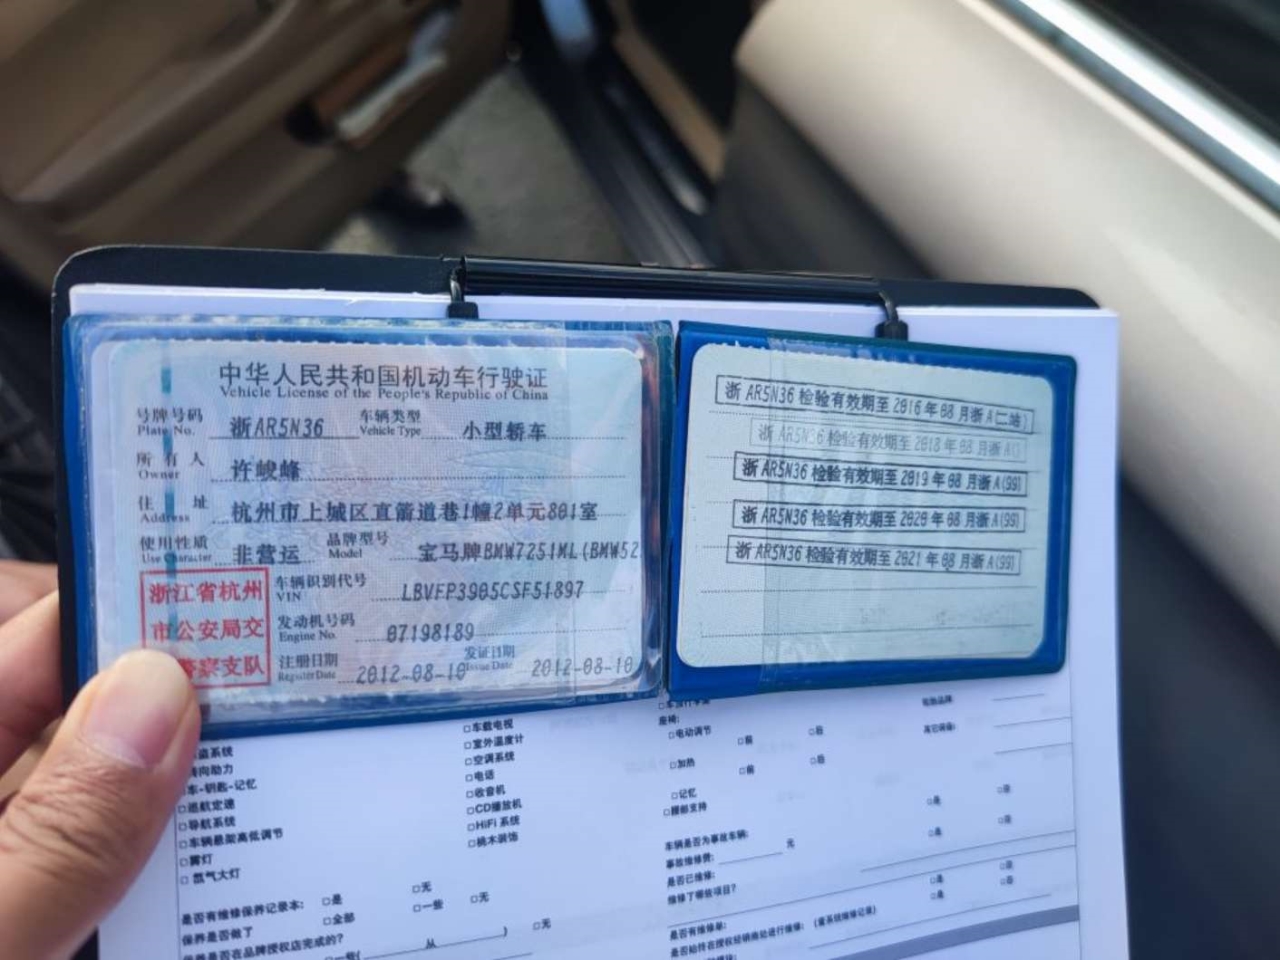 中华人民共和国机动车行驶证
Vehicle License of the People's Republic of China
号牌号码 Plate No. 浙AR5N36 车辆类型 Vehicle Type 小型轿车
所有人 Owner 许峻峰
住址 Address 杭州市上城区直箭道巷1幢2单元801室
使用性质 Use Character 非营运 品牌型号 Model 宝马牌BMW7251ML(BMW52
浙江省杭州
市公安局交
警察支队
车辆识别代号 VIN LBVFP3905CSF51897
发动机号码 Engine No. 07198189
注册日期 Register Date 2012-08-10 发证日期 Issue Date 2012-08-10
浙AR5N36检验有效期至2016年08月浙A(二站)
浙AR5N36检验有效期至2018年08月浙A()
浙AR5N36检验有效期至2019年08月浙A(99)
浙AR5N36检验有效期至2020年08月浙A(99)
浙AR5N36检验有效期至2021年08月浙A(99)
盗系统
转向助力
车-钥匙-记忆
□巡航定速
□导航系统
□车辆悬架高低调节
□雾灯
□氙气大灯
□车载电视
□室外温度计
□空调系统
□电话
□收音机
□CD播放机
□HiFi系统
□桃木装饰
座椅:
□电动调节 □前 □后
□加热 □前 □后
□记忆
□腰部支持
车辆是否为事故车辆: □是 □否
事故维修费: 元
是否已维修: □是 □否
维修了哪些项目?
是否有维修保养记录本: □是 □无
保养是否做了 □全部 □一些 □无
保养是否在品牌授权店完成的? □无
□一些( 从 )
是否有维修单: □是 □否
是否始终在授权经销商处进行维修: (看系统维修记录) □是 □否